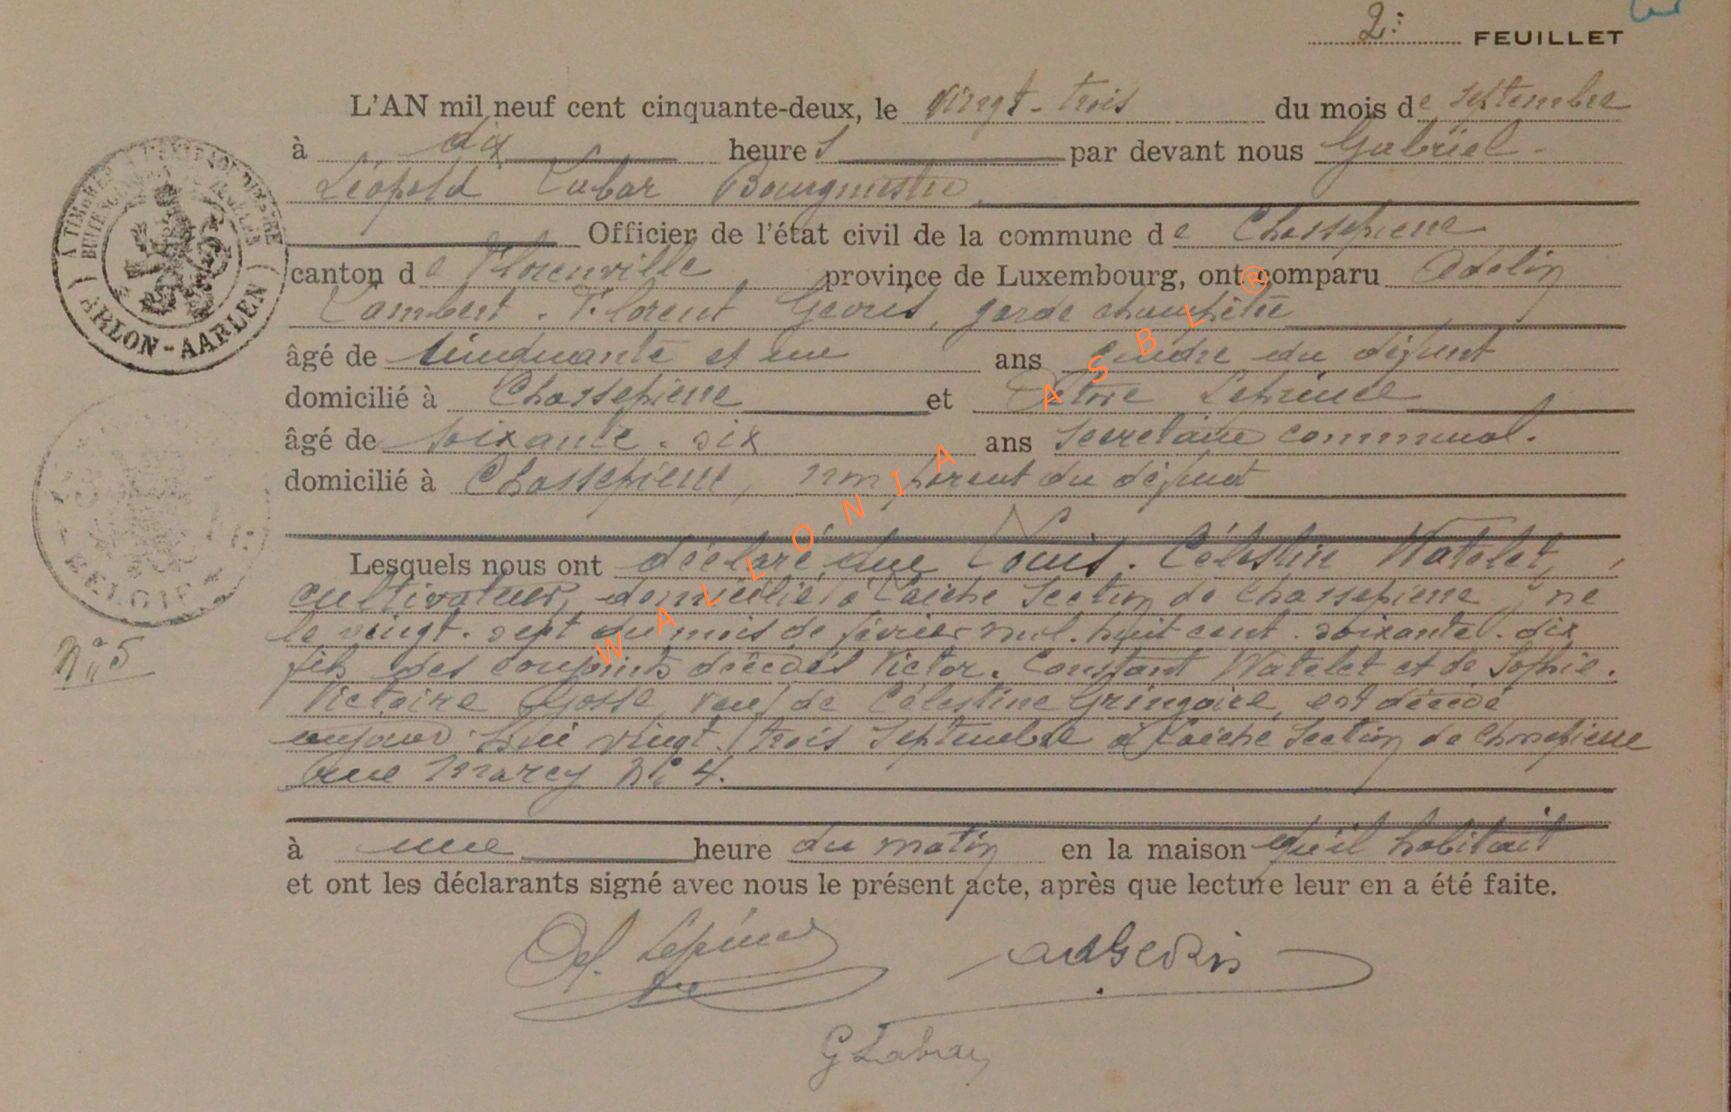 2e FEUILLET
L'AN mil neuf cent cinquante-deux, le vingt-trois du mois de septembre
à dix heures par devant nous Gabriel
Léopold Labar Bourgmestre
Officier de l'état civil de la commune de Chassepierre
canton de Florenville province de Luxembourg, ont comparu Adelin
Lambert. Florent Gervis, garde champêtre
âgé de cinquante et un ans gendre du défunt
domicilié à Chassepierre et Lepince
âgé de soixante. six ans secrétaire communal.
domicilié à Chassepierre, non parent du défunt
Lesquels nous ont déclaré que Louis. Célestin Watelet,
cultivateur, domicilié à Laiche Section de Chassepierre, né
le vingt. sept du mois de février mil. huit cent. soixante. dix
fils des conjoints décédés Victor. Constant Watelet et de Sophie.
Victoire Gosse, veuf de Célestine Gringoire, est décédé
aujourd'hui vingt. trois Septembre à Laiche Section de Chassepierre
rue Marcy N° 4.
à une heure du matin en la maison qu'il habitait
et ont les déclarants signé avec nous le présent acte, après que lecture leur en a été faite.
N° 5
ARLON - AARLEN
BELGIE
WALLONIA ASBL ®